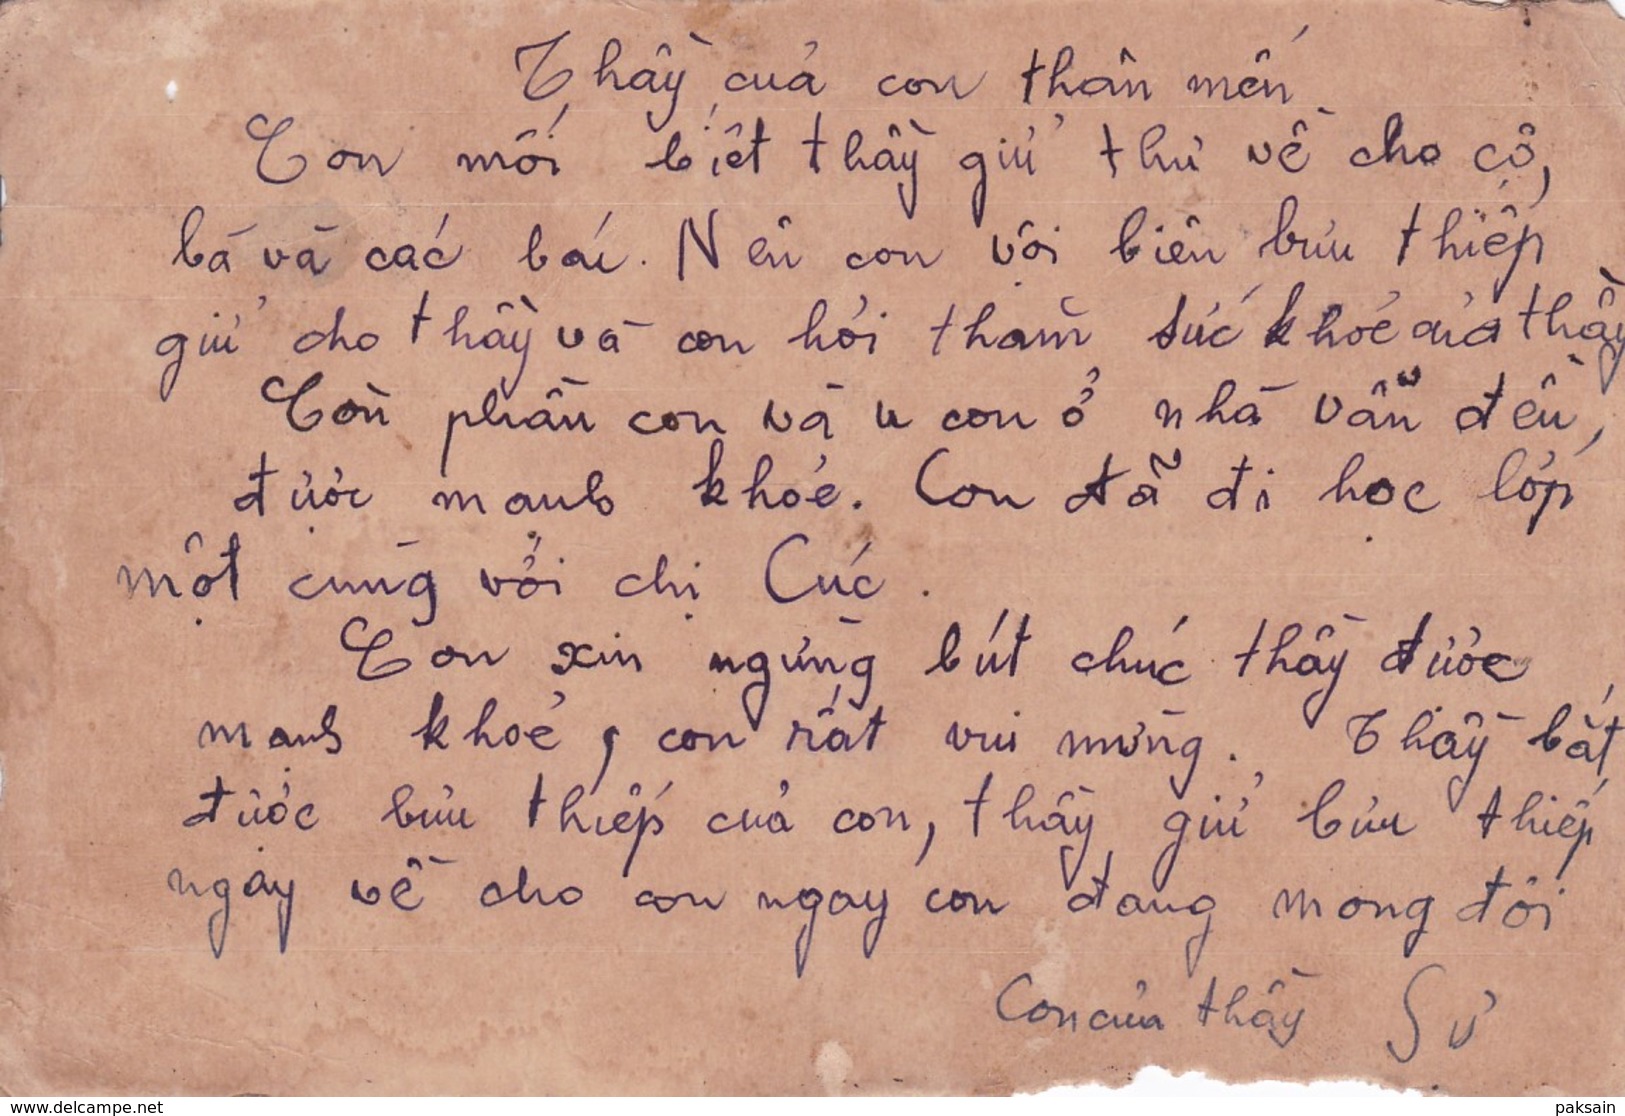 Thầy của con thân mến
Con mới biết thầy gửi thư về cho cô,
bá và các bác. Nên con vội biên bưu thiếp
gửi cho thầy và con hỏi thăm sức khỏe của thầy
Còn phần con và u con ở nhà vẫn đều,
được mạnh khỏe. Con đã đi học lớp
một cùng với chị Cúc.
Con xin ngừng bút chúc thầy được
mạnh khỏe, con rất vui mừng. Thầy bắt
được bưu thiếp của con, thầy gửi bưu thiếp
ngay về cho con ngay con đang mong đợi
Con của thầy Sư
www.delcampe.net
paksain